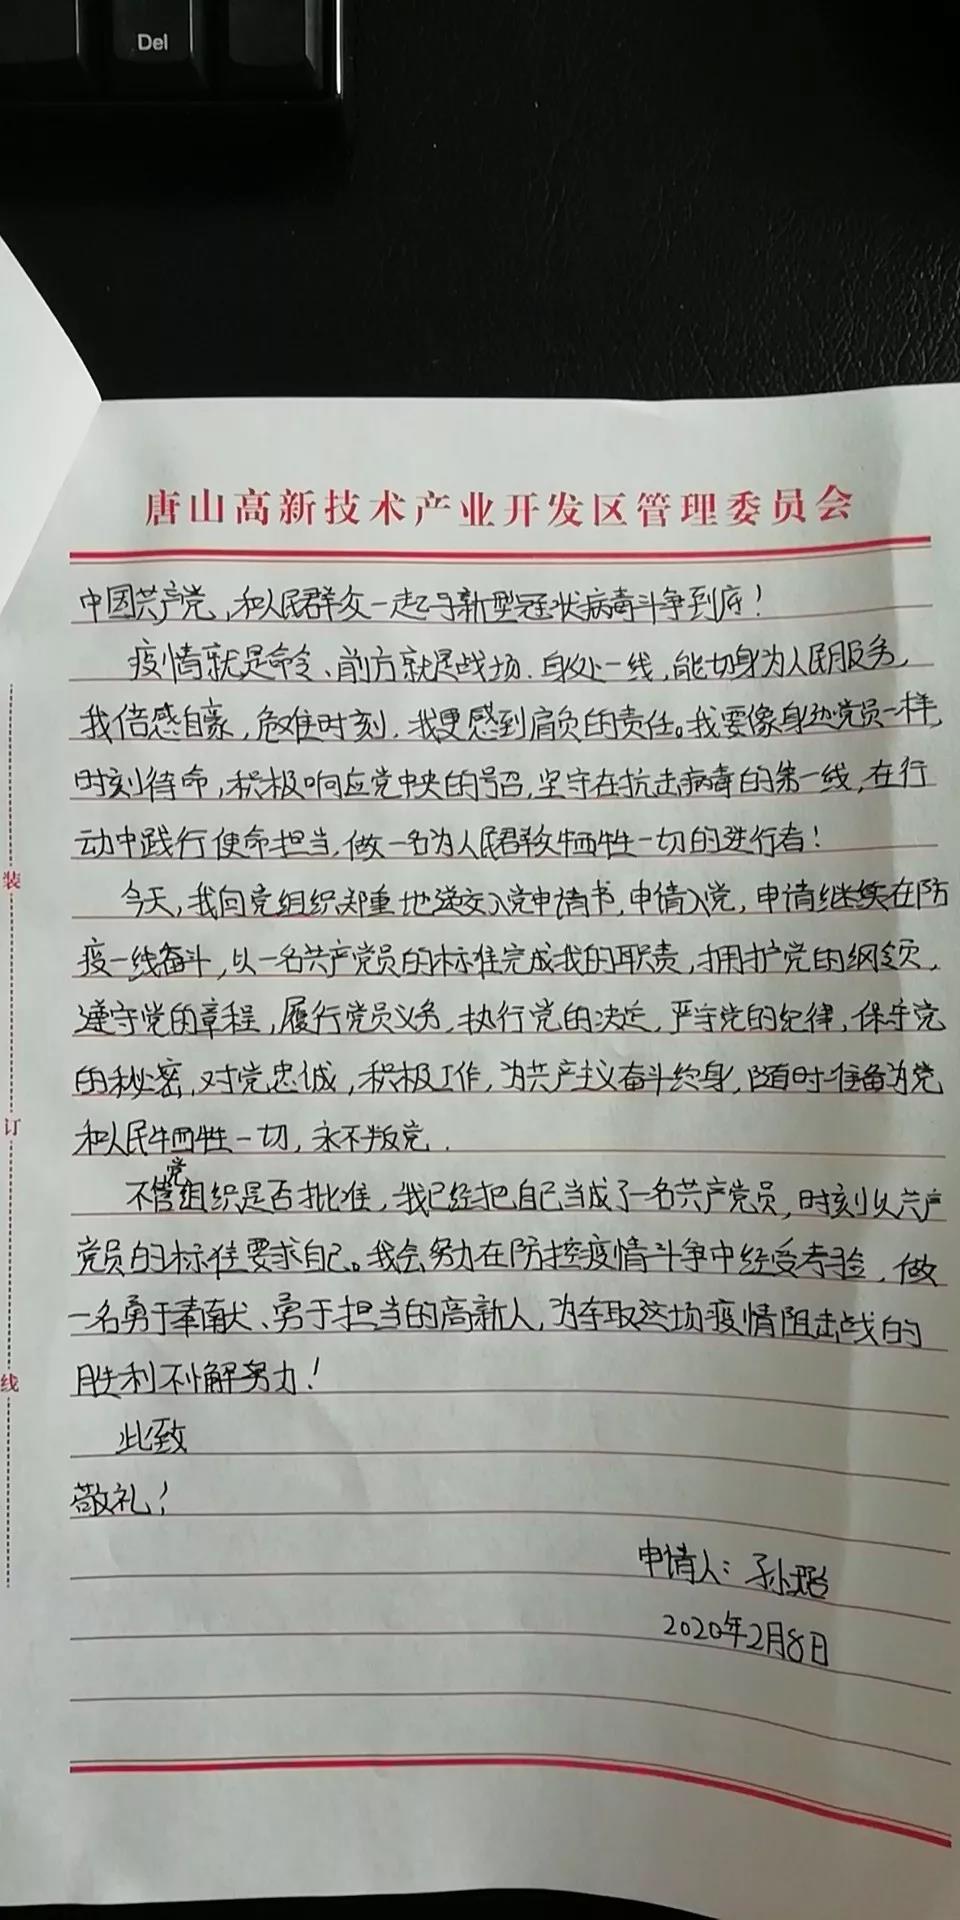 Del
唐山高新技术产业开发区管理委员会
中国共产党,和人民群众一起与新型冠状病毒斗争到底!
疫情就是命令、前方就是战场.身处一线,能切身为人民服务,
我倍感自豪,危难时刻,我更感到肩负的责任。我要像身边党员一样,
时刻待命,积极响应党中央的号召,坚守在抗击病毒的第一线,在行
动中践行使命担当,做一名为人民群众牺牲一切的逆行者!
今天,我向党组织郑重地递交入党申请书,申请入党,申请继续在防
疫一线奋斗,以一名共产党员的标准完成我的职责,拥护党的纲领,
遵守党的章程,履行党员义务,执行党的决定,严守党的纪律,保守党
的秘密,对党忠诚,积极工作,为共产主义奋斗终身,随时准备为党
和人民牺牲一切,永不叛党.
不管党组织是否批准,我已经把自己当成了一名共产党员,时刻以共产
党员的标准要求自己。我会努力在防控疫情斗争中经受考验,做
一名勇于奉献、勇于担当的高新人,为夺取这场疫情阻击战的
胜利不懈努力!
此致
敬礼!
申请人:孙璐
2020年2月8日
装
订
线